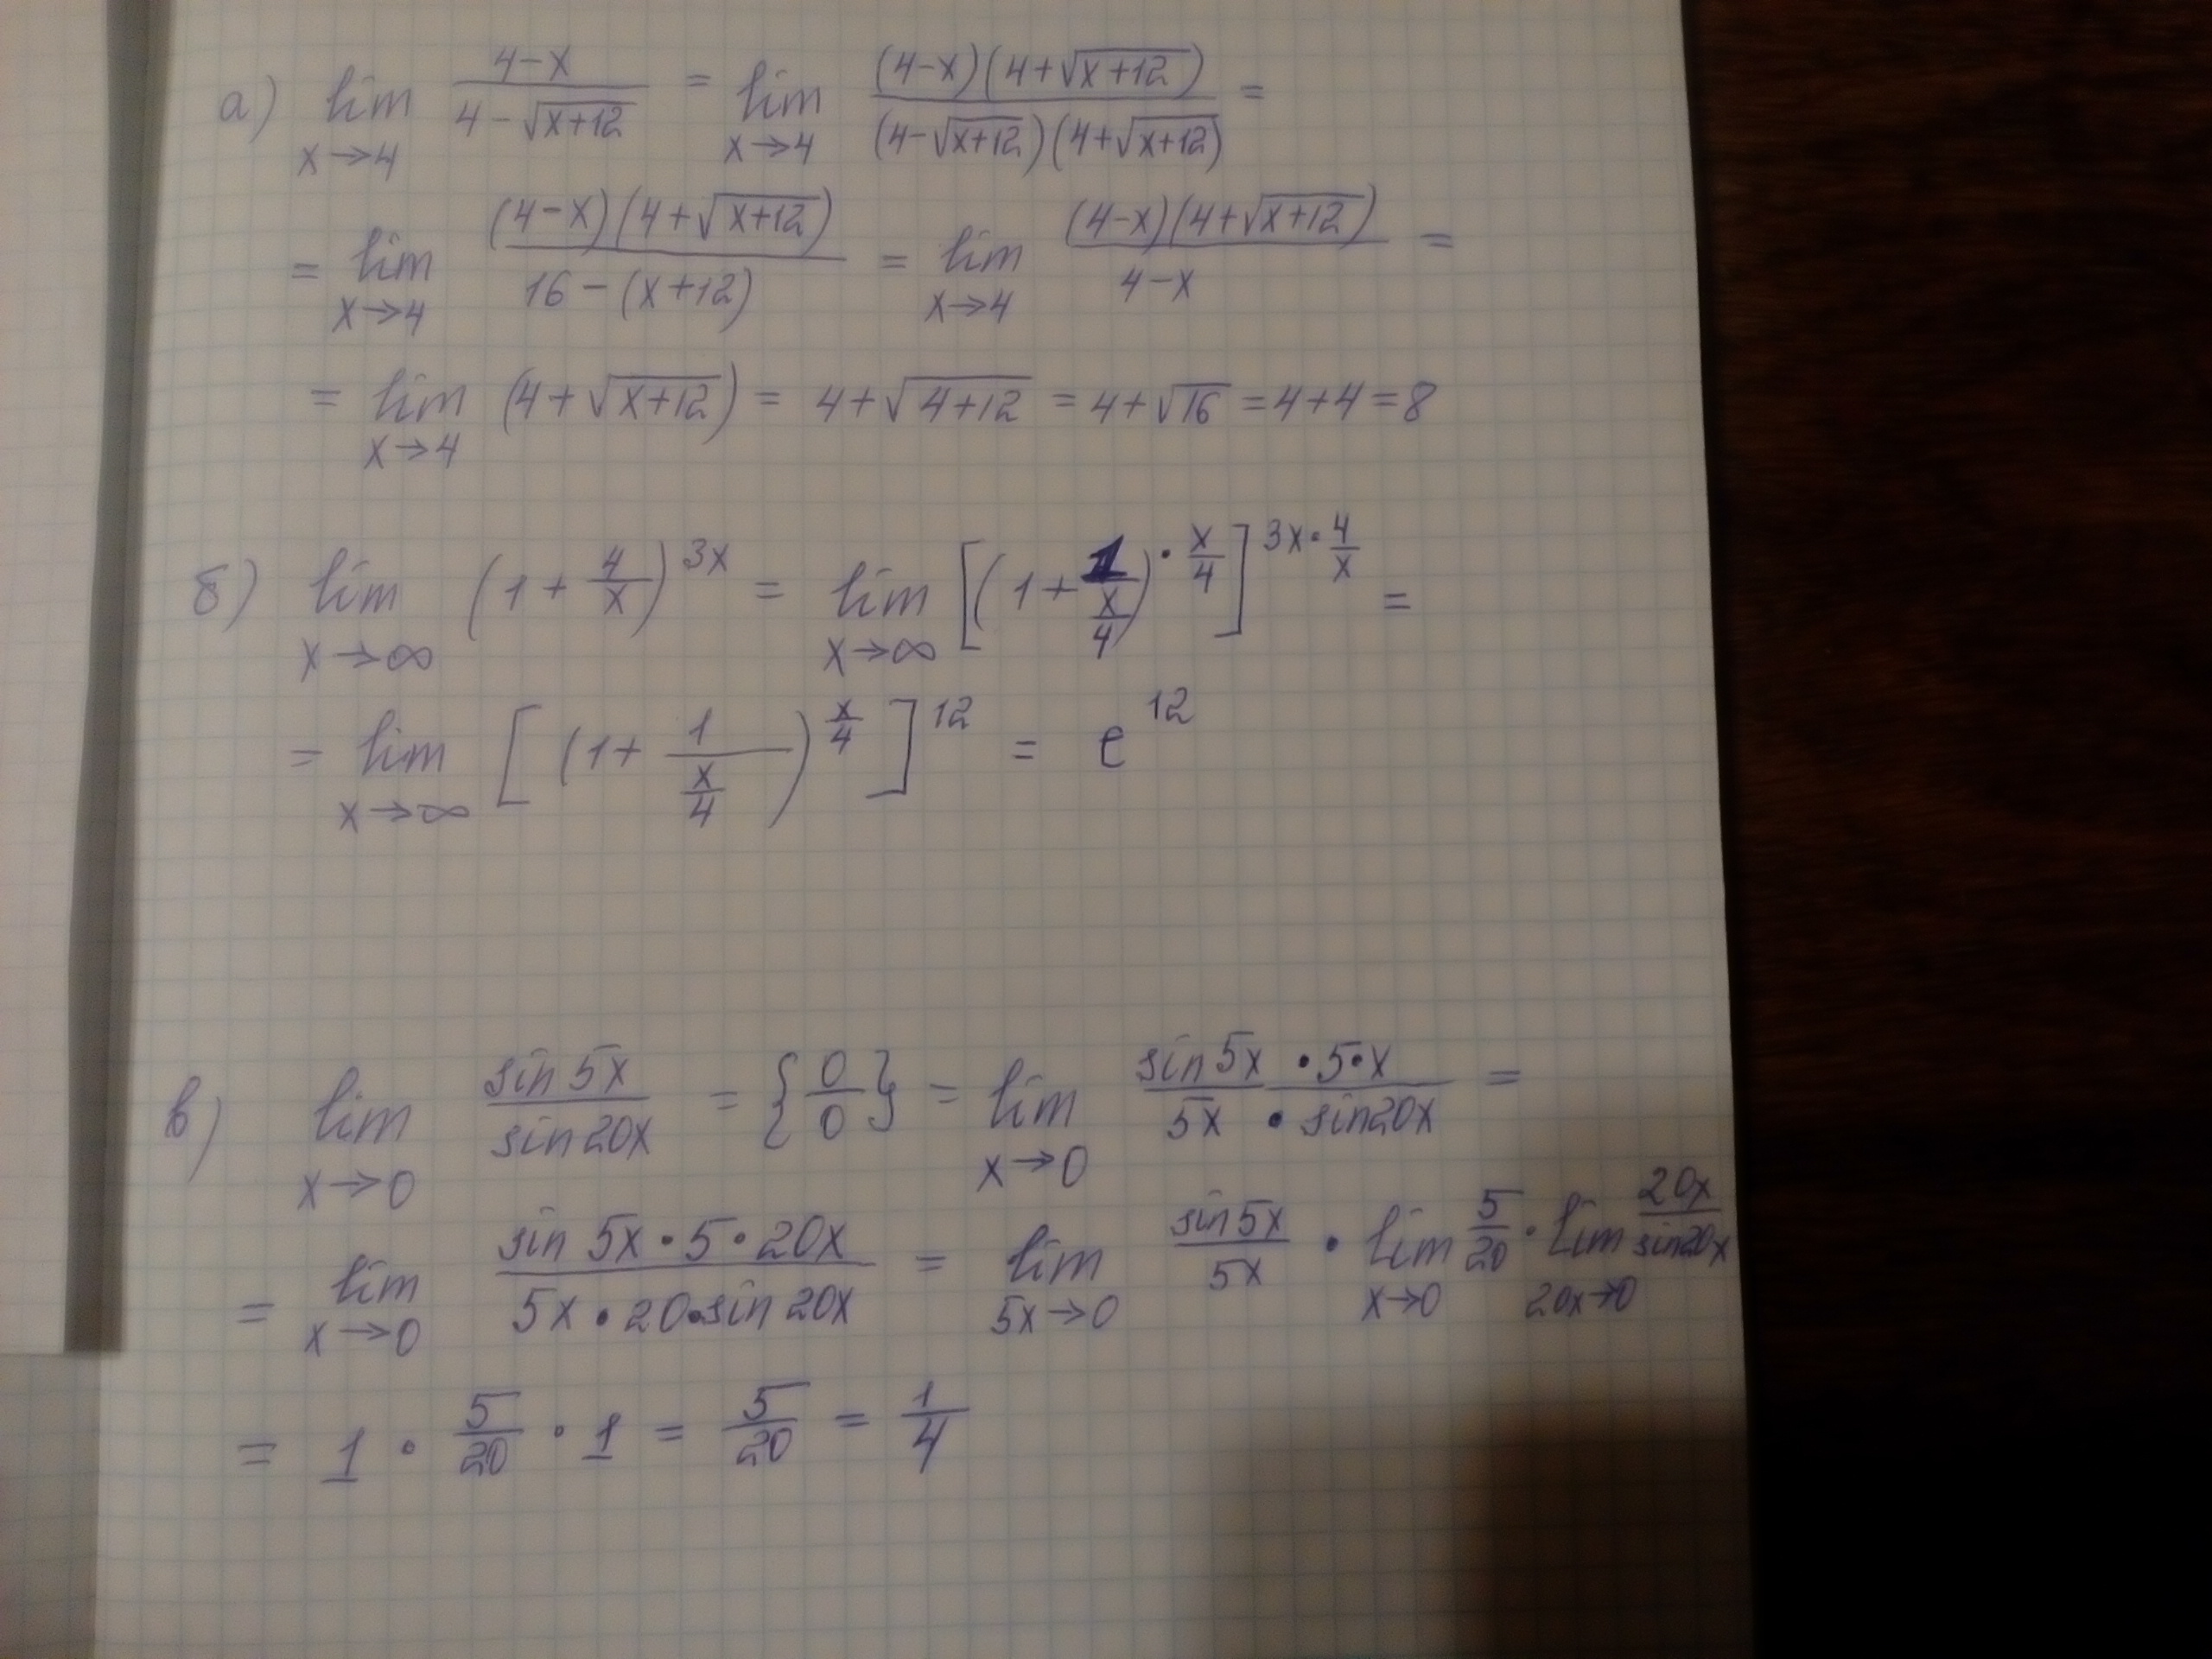 а) lim x→4 (4-x)/(4-√(x+12)) = lim x→4 ((4-x)(4+√(x+12)))/((4-√(x+12))(4+√(x+12))) =
= lim x→4 ((4-x)(4+√(x+12)))/(16-(x+12)) = lim x→4 ((4-x)(4+√(x+12)))/(4-x) =
= lim x→4 (4+√(x+12)) = 4+√(4+12) = 4+√16 = 4+4 = 8
б) lim x→∞ (1+4/x)^(3x) = lim x→∞ [(1+1/(x/4))^(·x/4)]^(3x·4/x) =
= lim x→∞ [(1+1/(x/4))^(x/4)]^12 = e^12
в) lim x→0 (sin 5x)/(sin 20x) = {0/0} = lim x→0 (sin 5x · 5·x)/(5x · sin 20x) =
= lim x→0 (sin 5x · 5 · 20x)/(5x · 20 · sin 20x) = lim 5x→0 (sin 5x)/(5x) · lim x→0 5/20 · lim 20x→0 (20x)/(sin 20x)
= 1 · 5/20 · 1 = 5/20 = 1/4